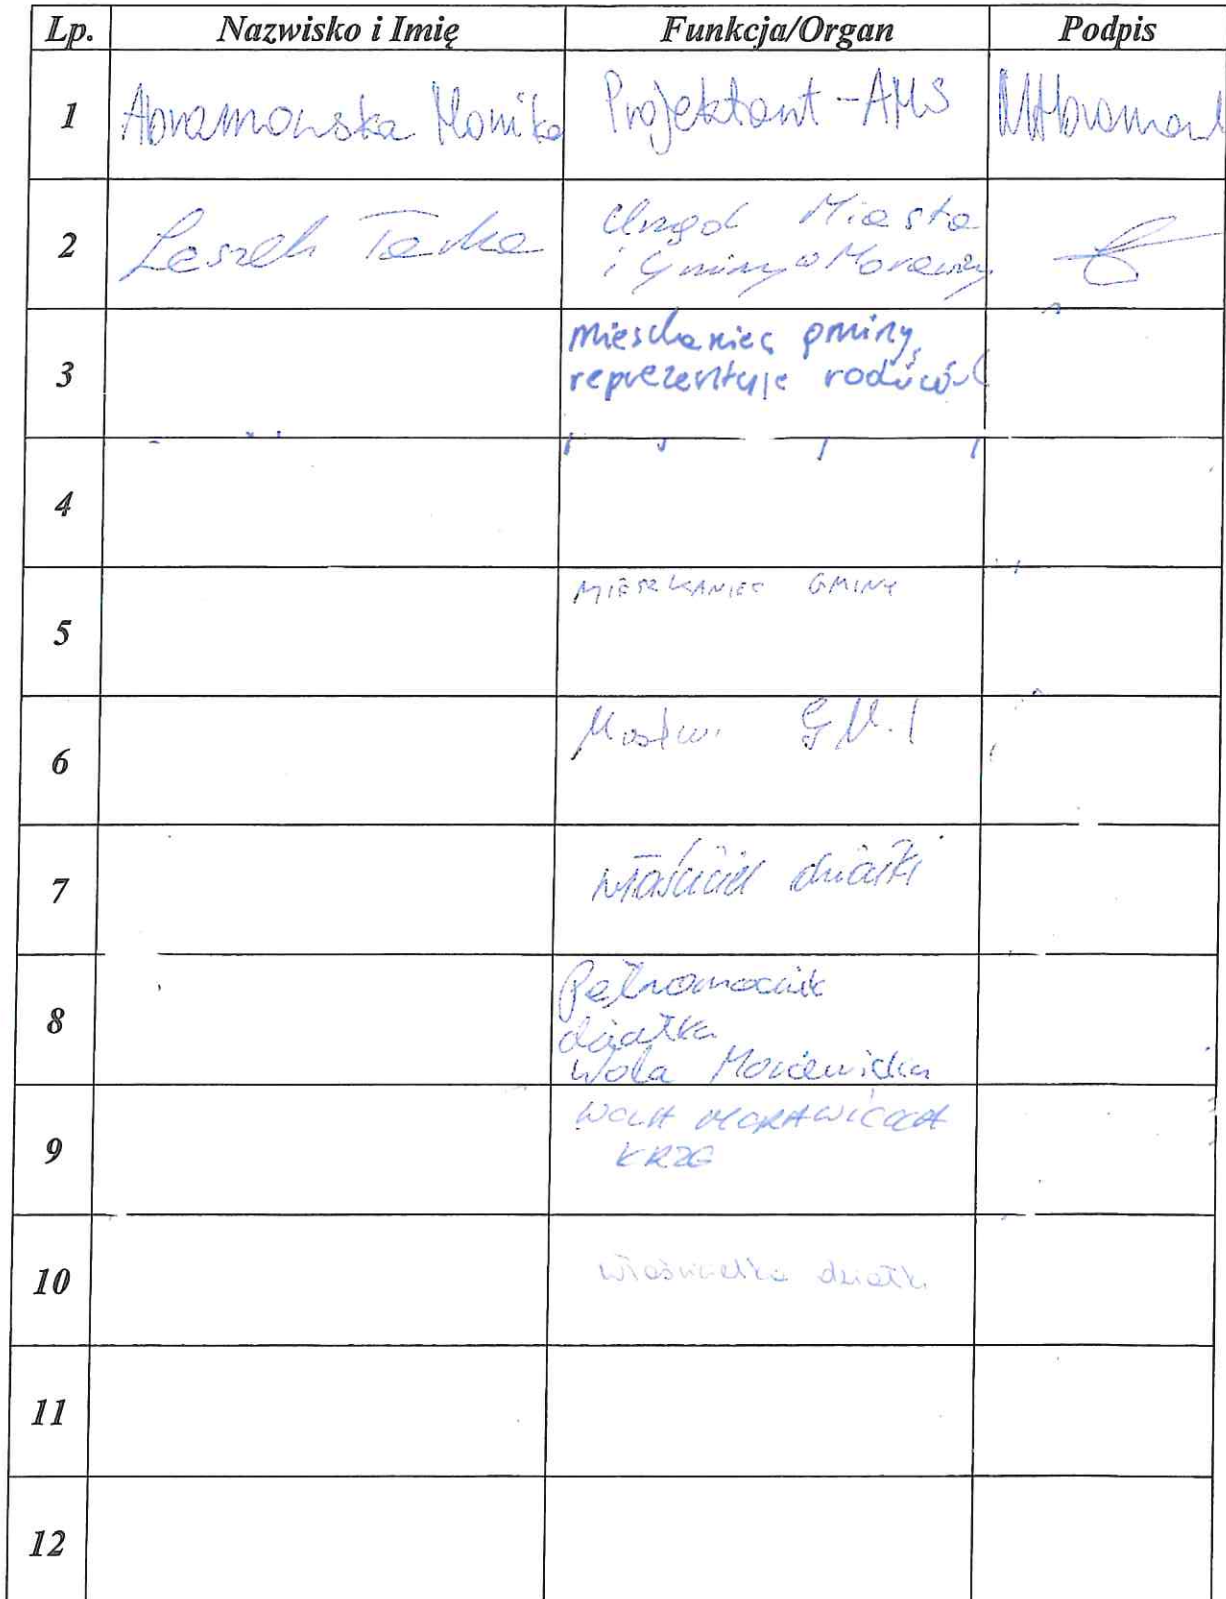 Lp. Nazwisko i Imię Funkcja/Organ Podpis
1 Abramowska Monika Projektant - AMS MAbramowsk
2 Leszek Urząd Miasta
i Gminy w Morawicy
3 mieszkaniec gminy,
reprezentuje rodziców
4
5 MIESZKANIEC GMINY
6
7 właściciel działki
8 Pełnomocnik
działka
Wola Morawicka
9 WOLA MORAWICKA
10 właścicielka działki
11
12